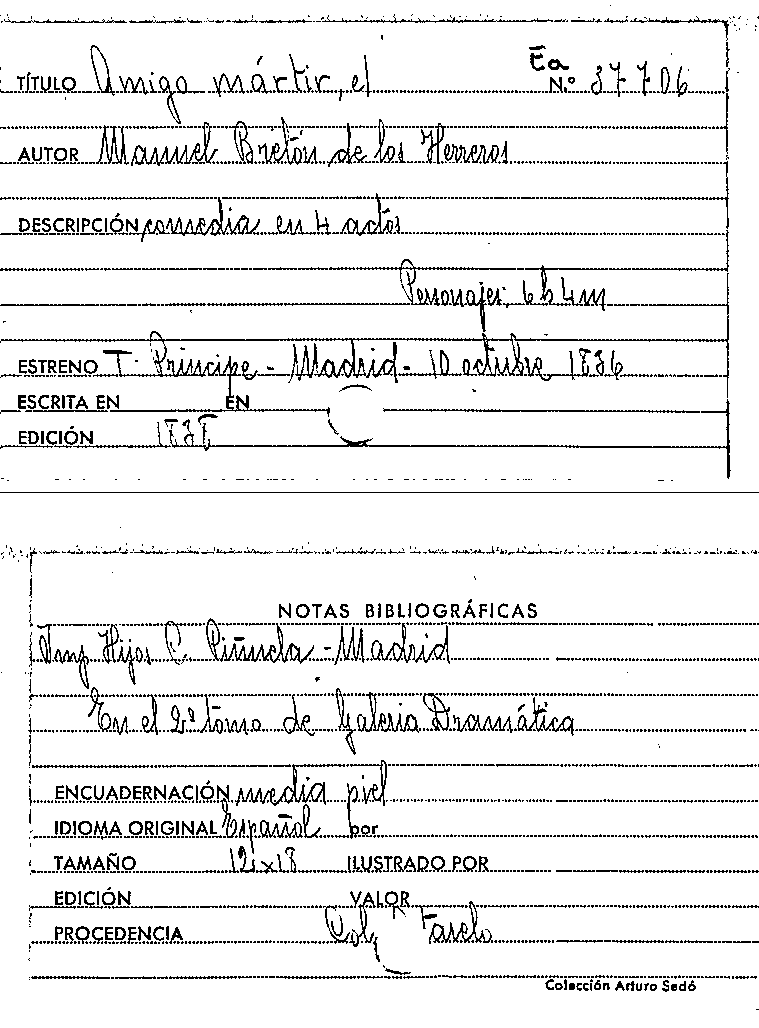 TÍTULO Amigo mártir, el
Ea
N.º 37706
AUTOR Manuel Bretón de los Herreros
DESCRIPCIÓN comedia en 4 actos
Personajes: 6 h 4 m
ESTRENO T. Príncipe - Madrid - 10 octubre 1836
ESCRITA EN EN
EDICIÓN 1838
NOTAS BIBLIOGRÁFICAS
Imp Hijos C. Piñuela - Madrid
En el 2º tomo de Galeria Dramática
ENCUADERNACIÓN media piel
IDIOMA ORIGINAL Español por
TAMAÑO 12x18 ILUSTRADO POR
EDICIÓN VALOR
PROCEDENCIA Col.
Colección Arturo Sedó